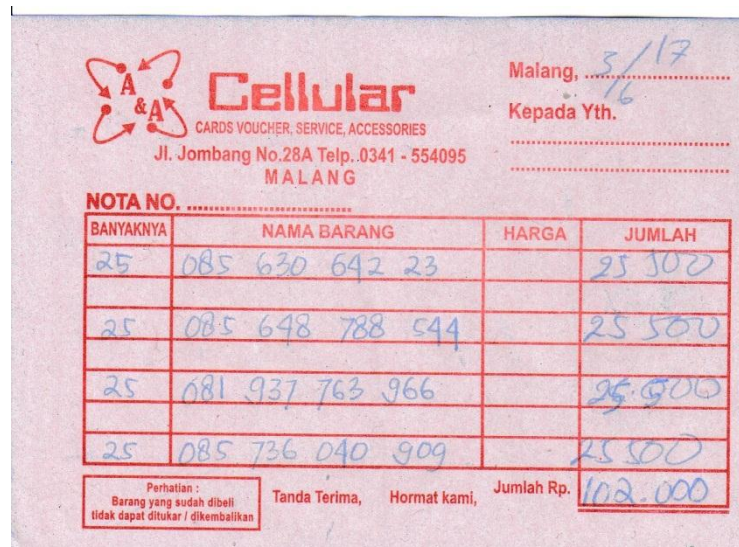 A & A Cellular
CARDS VOUCHER, SERVICE, ACCESSORIES
Jl. Jombang No.28A Telp..0341 - 554095
MALANG
Malang, 3/6 17
Kepada Yth.
NOTA NO.
BANYAKNYA NAMA BARANG HARGA JUMLAH
25 085 630 642 23 25 500
25 085 648 788 544 25 500
25 081 937 763 966 25.500
25 085 736 040 909 25 500
Perhatian :
Barang yang sudah dibeli
tidak dapat ditukar / dikembalikan
Tanda Terima, Hormat kami, Jumlah Rp. 102.000